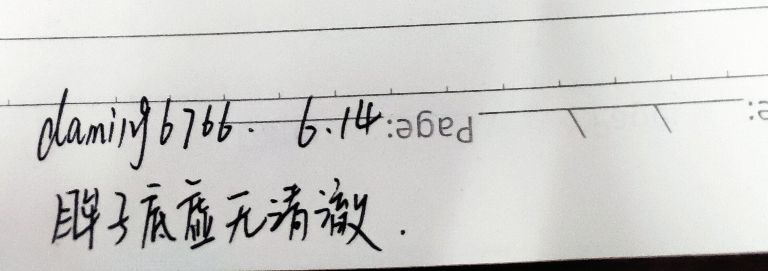 daming6766. 6.14
Page:
e:
眸子底虚无清澈.